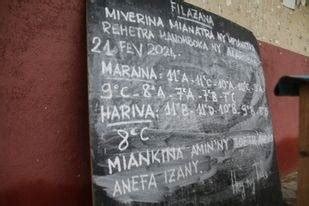 FILAZANA
MIVERINA MIANATRA NY MPIANATRA
REHETRA MANOMBOKA NY
21 FEV 2021.
MARAINA: 11°A - 11°C - 10°A
9°C - 8°A - 7°A - 7°B - 7°C
HARIVA: 11°B - 11°D - 10°B
8°C
MIANKINA AMIN'NY
ANEFA IZANY.